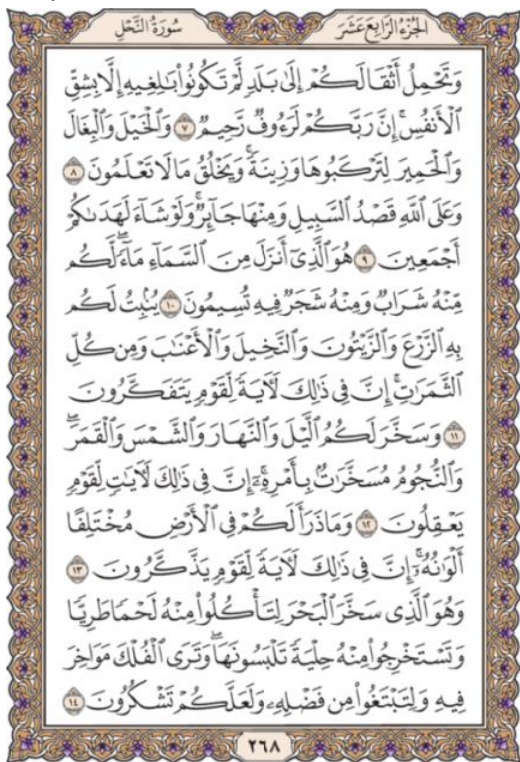 الجزء الرابع عشر
سورة النحل
وَتَحْمِلُ أَثْقَالَكُمْ إِلَىٰ بَلَدٍ لَّمْ تَكُونُوا۟ بَٰلِغِيهِ إِلَّا بِشِقِّ
ٱلْأَنفُسِ ۚ إِنَّ رَبَّكُمْ لَرَءُوفٌ رَّحِيمٌ ٧ وَٱلْخَيْلَ وَٱلْبِغَالَ
وَٱلْحَمِيرَ لِتَرْكَبُوهَا وَزِينَةً ۚ وَيَخْلُقُ مَا لَا تَعْلَمُونَ ٨
وَعَلَى ٱللَّهِ قَصْدُ ٱلسَّبِيلِ وَمِنْهَا جَآئِرٌ ۚ وَلَوْ شَآءَ لَهَدَىٰكُمْ
أَجْمَعِينَ ٩ هُوَ ٱلَّذِىٓ أَنزَلَ مِنَ ٱلسَّمَآءِ مَآءً ۖ لَّكُم
مِّنْهُ شَرَابٌ وَمِنْهُ شَجَرٌ فِيهِ تُسِيمُونَ ١٠ يُنۢبِتُ لَكُم
بِهِ ٱلزَّرْعَ وَٱلزَّيْتُونَ وَٱلنَّخِيلَ وَٱلْأَعْنَٰبَ وَمِن كُلِّ
ٱلثَّمَرَٰتِ ۗ إِنَّ فِى ذَٰلِكَ لَءَايَةً لِّقَوْمٍ يَتَفَكَّرُونَ
١١ وَسَخَّرَ لَكُمُ ٱلَّيْلَ وَٱلنَّهَارَ وَٱلشَّمْسَ وَٱلْقَمَرَ ۖ
وَٱلنُّجُومُ مُسَخَّرَٰتٌۢ بِأَمْرِهِۦٓ ۗ إِنَّ فِى ذَٰلِكَ لَءَايَٰتٍ لِّقَوْمٍ
يَعْقِلُونَ ١٢ وَمَا ذَرَأَ لَكُمْ فِى ٱلْأَرْضِ مُخْتَلِفًا
أَلْوَٰنُهُۥٓ ۗ إِنَّ فِى ذَٰلِكَ لَءَايَةً لِّقَوْمٍ يَذَّكَّرُونَ ١٣
وَهُوَ ٱلَّذِى سَخَّرَ ٱلْبَحْرَ لِتَأْكُلُوا۟ مِنْهُ لَحْمًا طَرِيًّا
وَتَسْتَخْرِجُوا۟ مِنْهُ حِلْيَةً تَلْبَسُونَهَا ۖ وَتَرَى ٱلْفُلْكَ مَوَاخِرَ
فِيهِ وَلِتَبْتَغُوا۟ مِن فَضْلِهِۦ وَلَعَلَّكُمْ تَشْكُرُونَ ١٤
٢٦٨